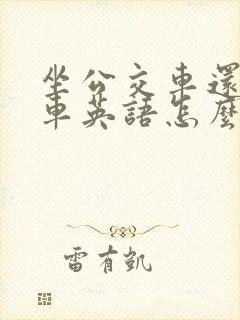 坐公交車還
車英語怎麼
雷有凱